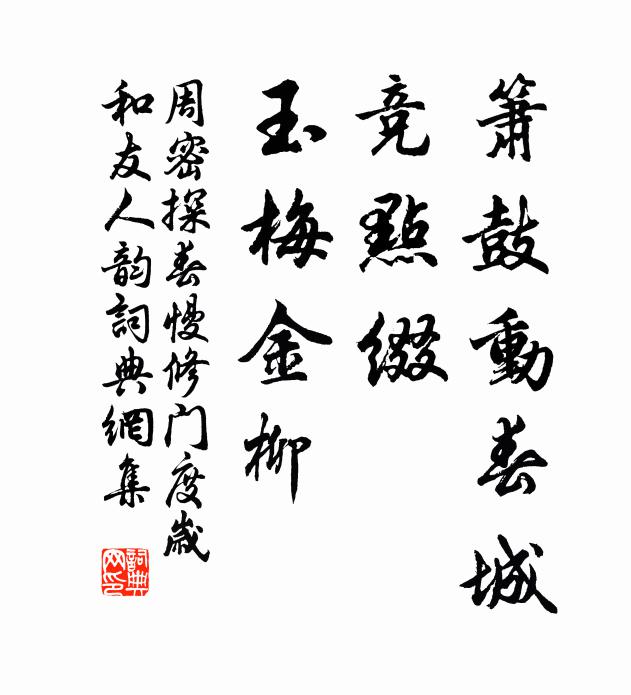 箫鼓動春城
竞點缀
玉梅金柳
周密探春慢修门度歲
和友人韵詞典網集
詞典网印